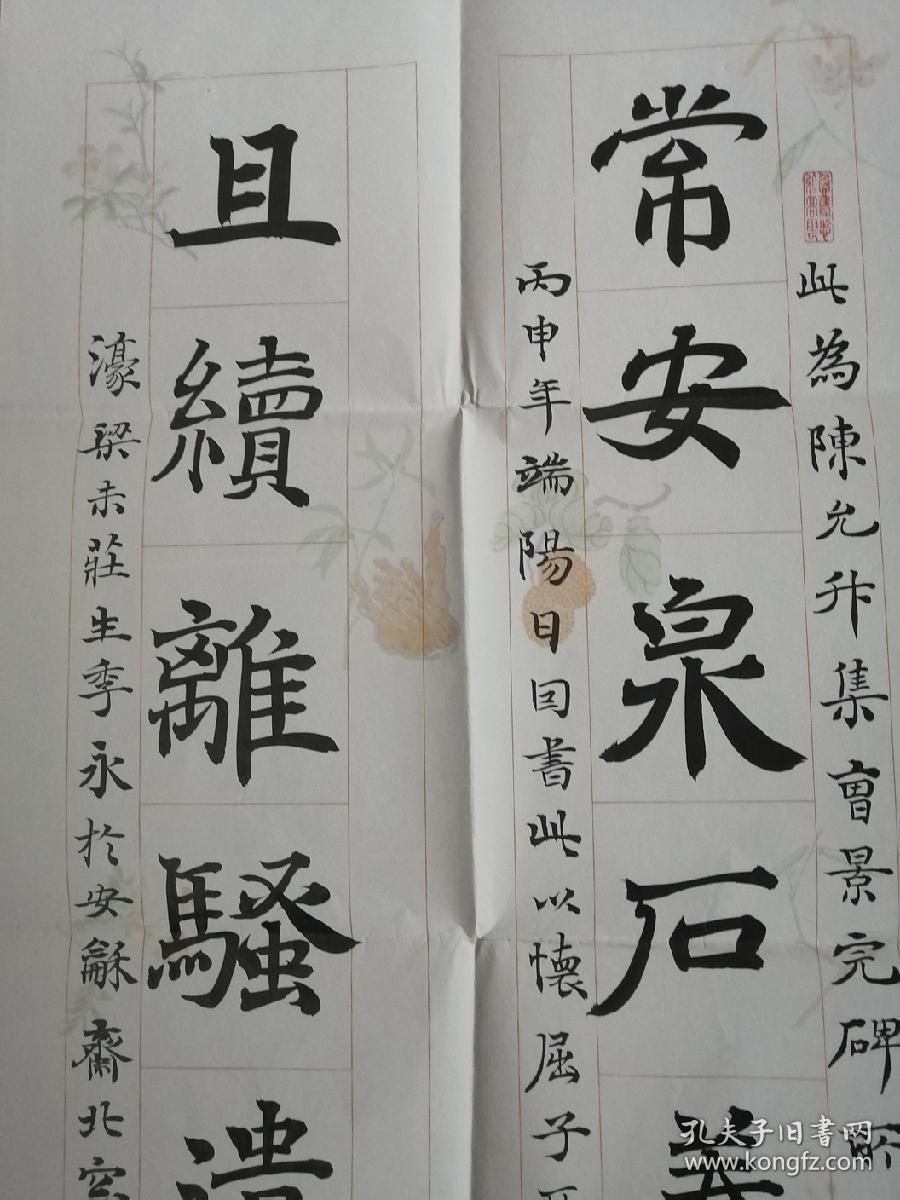 此為陳允升集曺景完碑所
常安泉石
丙申年端陽日因書此以懷屈子
且續離騷遺
濠梁未莊生季永於安龢齋北窓
孔夫子旧书网
www.kongfz.com